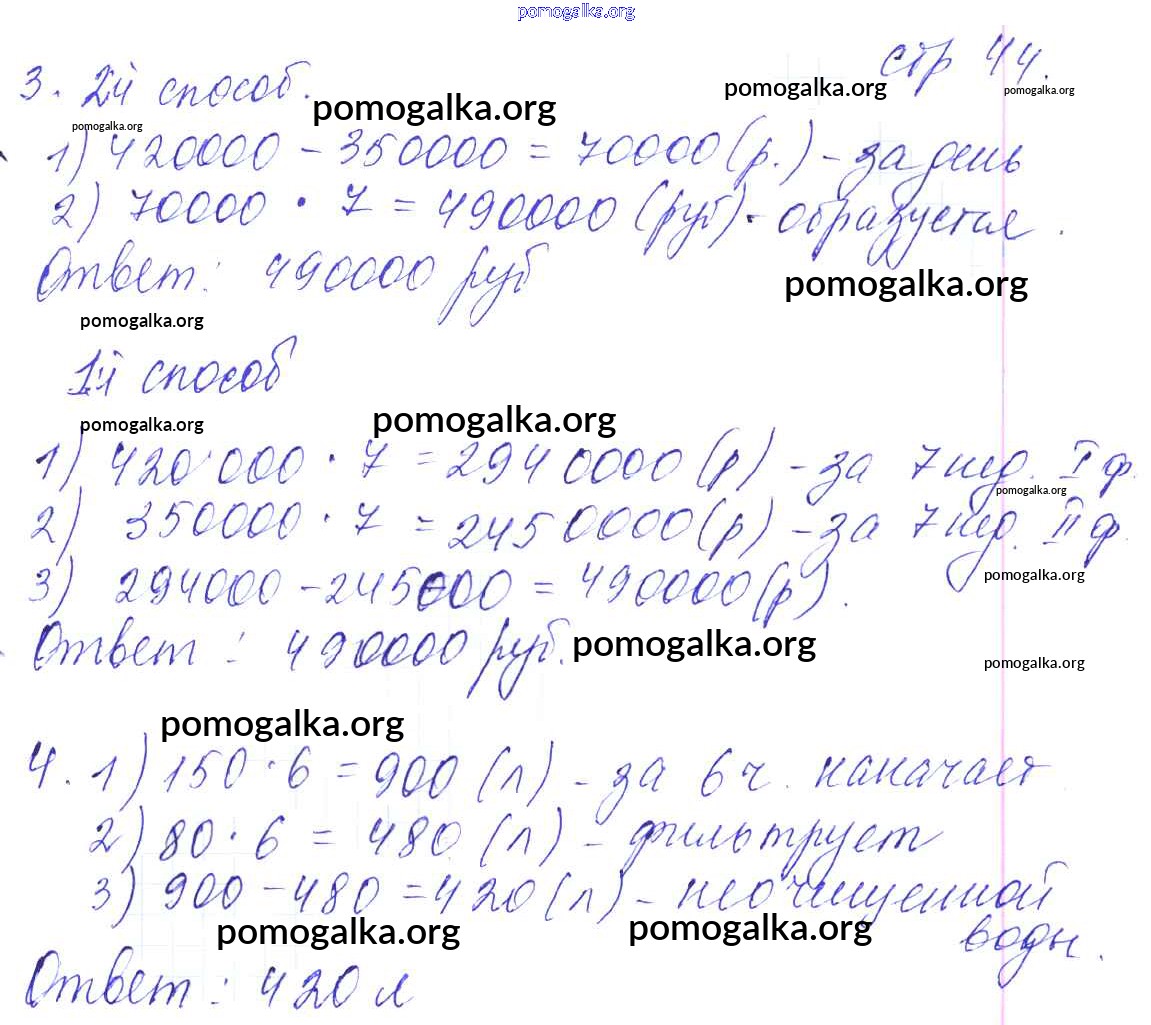 pomogalka.org
стр 44.
3. 2й способ.
pomogalka.org
pomogalka.org
pomogalka.org
pomogalka.org
1) 420000 - 350000 = 70000 (р.) - за день
2) 70000 · 7 = 490000 (руб) - образуется.
Ответ: 490000 руб
pomogalka.org
pomogalka.org
1й способ
pomogalka.org
pomogalka.org
1) 420 000 · 7 = 2940000 (р) - за 7 нед. I ф.
pomogalka.org
2) 350000 · 7 = 2450000 (р) - за 7 нед. II ф.
pomogalka.org
3) 294000 - 245000 = 490000 (р).
Ответ: 490000 руб.
pomogalka.org
pomogalka.org
pomogalka.org
4. 1) 150 · 6 = 900 (л) - за 6 ч. накачает
2) 80 · 6 = 480 (л) - фильтрует
3) 900 - 480 = 420 (л) - неочищенной
воды.
pomogalka.org
pomogalka.org
Ответ: 420 л